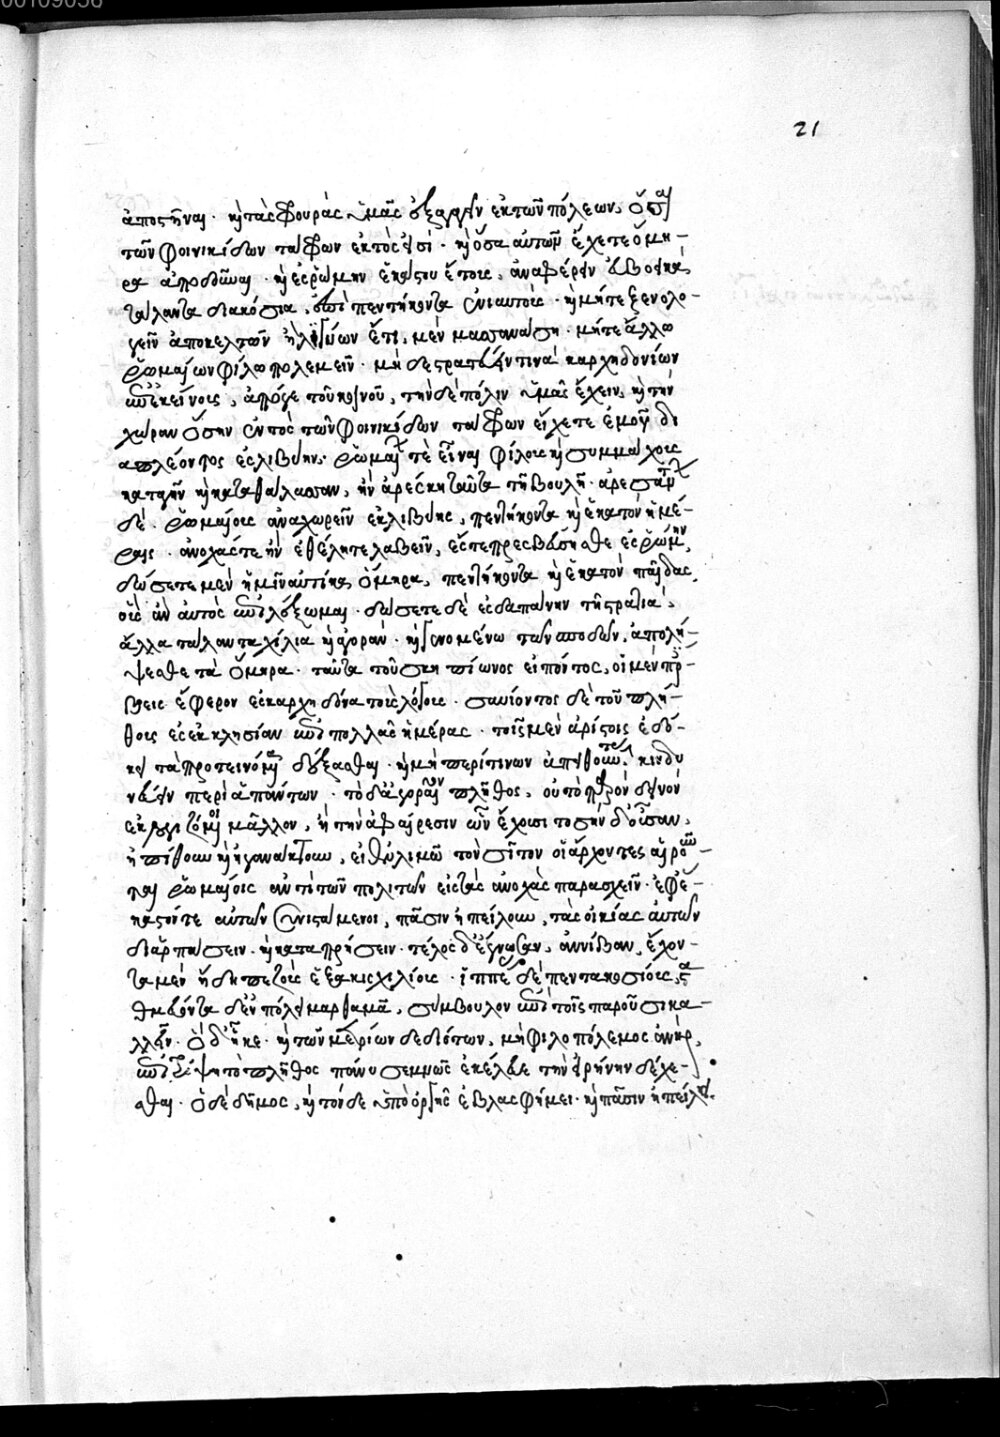 21
ἀποστῆναι. καὶ τὰς φρουρὰς ὑμᾶς ἐξαγαγεῖν ἐκ τῶν πόλεων, ὅσαι
τῶν φοινικίδων τάφρων ἐκτός εἰσι. καὶ ὅσα αὐτῶν ἔχετε ὅμη-
ρα ἀποδοῦναι. καὶ ἐς ῥώμην ἑκάστου ἔτους, ἀναφέρειν εὐβοϊκὰ
τάλαντα διακόσια, ἐπὶ πεντήκοντα ἐνιαυτούς. καὶ μήτε ξενολο-
γεῖν ἀπὸ κελτῶν ἢ λιγύων ἔτι, μὲν μασσανάσσῃ. μήτε ἄλλῳ
ῥωμαίων φίλῳ πολεμεῖν. μὴ δὲ στρατεύειν τινὰ καρχηδονίων
ἐπ' ἐκείνοις, ἀπό γε τοῦ κοινοῦ, τὴν δὲ πόλιν ὑμᾶς ἔχειν, καὶ τὴν
χώραν ὅσην ἐντὸς τῶν φοινικίδων τάφρων εἴχετε ἐμοῦ δι
απλέοντος ἐς λιβύην. ῥωμαίων τὲ εἶναι φίλους καὶ συμμάχους
κατὰ γῆν καὶ κατὰ θάλασσαν, ἢν ἀρέσκῃ ταῦτα τῇ βουλῇ. ἀρεσάντων
δὲ. ῥωμαίους ἀναχωρεῖν ἐκ λιβύης, πεντήκοντα καὶ ἑκατὸν ἡμέ-
ραις. ἀνοχὰς τε ἢν ἐθέλητε λαβεῖν, ἔς τε πρεσβεύσησθε ἐς ῥώμην,
δώσετε μὲν ἡμῖν αὐτίκα ὅμηρα, πεντήκοντα καὶ ἑκατὸν παῖδας
οὓς ἂν αὐτὸς ἐπιλέξωμαι. δώσετε δὲ ἐς δαπάνην τῇ στρατιᾷ,
ἄλλα τάλαντα χίλια καὶ ἀγοράν. καὶ γενομένων τῶν σπονδῶν, ἀπολή-
ψεσθε τὰ ὅμηρα. ταῦτα τοῦ σκηπίωνος εἰπόντος, οἱ μὲν πρέσ-
βεις ἔφερον ἐς καρχηδόνα τοὺς λόγους. συνιόντος δὲ τοῦ πλή-
θους ἐς ἐκκλησίαν ἐπὶ πολλὰς ἡμέρας. τοῖς μὲν ἀρίστοις ἐδό-
κει τὰ προτεινόμενα δέξασθαι. καὶ μὴ περί τινων ἀπειθοῦντας, κινδυ
νεύειν περὶ ἁπάντων. τὸ δ' ἀγοραῖον πλῆθος, οὐ τὸ παρὸν δεινὸν
ἐκλογιζόμενοι μᾶλλον, ἢ τὴν ἀφαίρεσιν ὧν ἔχουσι τοσήνδ' οὖσαν,
ἠπείθουν καὶ ἠγανάκτουν, εἰ ἐν λιμῷ τὸν σῖτον οἱ ἄρχοντες αἱροῦν-
ται ῥωμαίοις ἀντὶ τῶν πολιτῶν εἰς τὰς ἀνοχὰς παρασχεῖν. ἐφ' ἑ-
κάστῳ τε αὐτῶν συνιστάμενοι, πᾶσιν ἠπείλουν, τὰς οἰκίας αὐτῶν
διαρπάσειν. καὶ καταπρήσειν. τέλος δ' ἔγνωσαν, ἀννίβαν, ἔχον-
τα μὲν ἤδη πεζοὺς ἑξακισχιλίους. ἱππέας δὲ πεντακοσίους, στα
θμεύοντα δ' ἐν πόλει μαρθαμᾷ, σύμβουλον ἐπὶ τοῖς παροῦσι κα-
λεῖν. ὁ δ' ἧκε. καὶ τῶν μετρίων δεδιότων, μὴ φιλοπόλεμος ἀνὴρ,
ἐπιτρίψῃ τὸ πλῆθος πάνυ σεμνῶς ἐκέλευε τὴν εἰρήνην δέχε-
σθαι. ὁ δὲ δῆμος, καὶ τόνδε ὑπὸ ὀργῆς ἐβλασφήμει. καὶ πᾶσιν ἠπείλει.